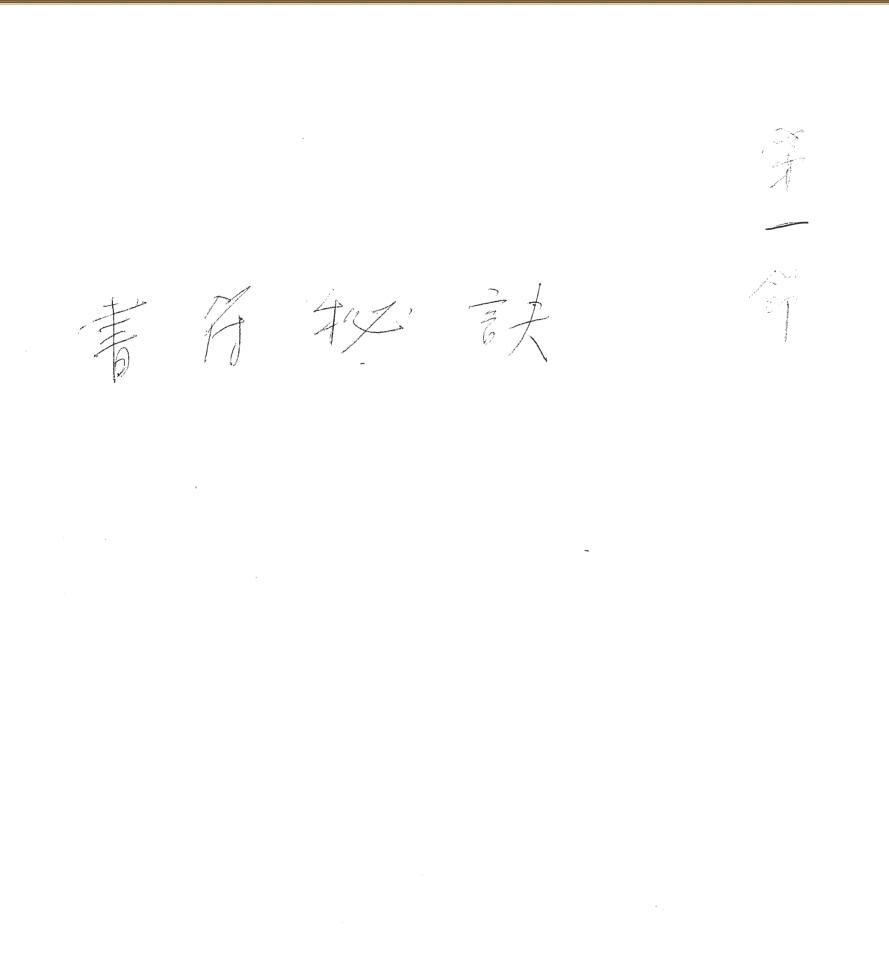 第一節
書符秘訣